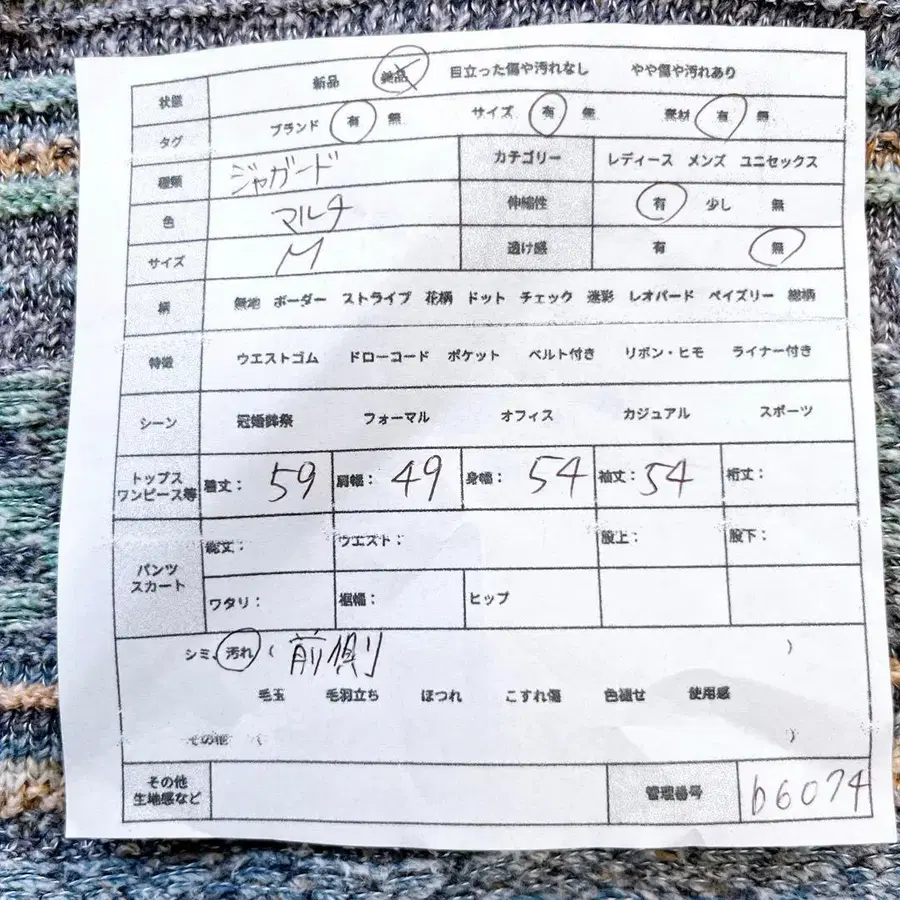 状態 新品 美品 目立った傷や汚れなし やや傷や汚れあり
タグ ブランド 有 無 サイズ 有 無 素材 有 無
種類 ジャガード カテゴリー レディース メンズ ユニセックス
色 マルチ 伸縮性 有 少し 無
サイズ M 透け感 有 無
柄 無地 ボーダー ストライプ 花柄 ドット チェック 迷彩 レオパード ペイズリー 総柄
特徴 ウエストゴム ドローコード ポケット ベルト付き リボン・ヒモ ライナー付き
シーン 冠婚葬祭 フォーマル オフィス カジュアル スポーツ
トップス
ワンピース等 着丈: 59 肩幅: 49 身幅: 54 袖丈: 54 裄丈:
パンツ
スカート 総丈: ウエスト: 股上: 股下:
ワタリ: 裾幅: ヒップ
シミ、汚れ ( 前側 )
毛玉 毛羽立ち ほつれ こすれ傷 色褪せ 使用感
その他 ( )
その他
生地感など 管理番号 b6074